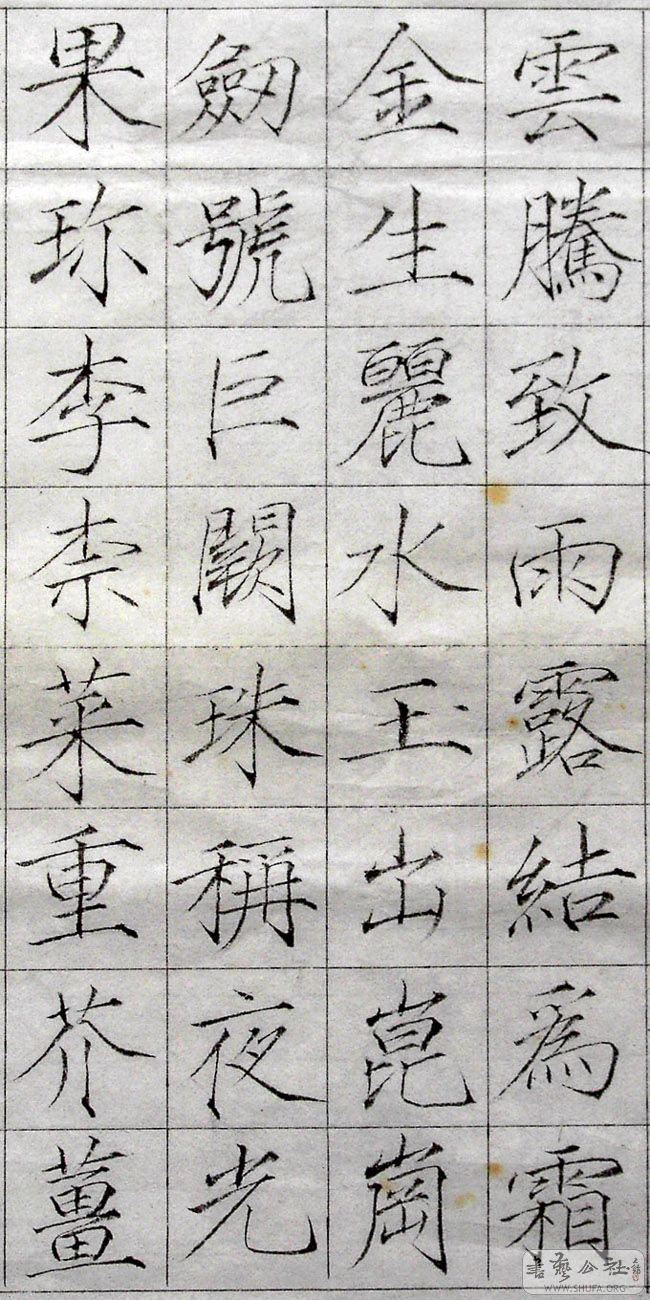 雲騰致雨露結爲霜
金生麗水玉出崑崗
劔號巨闕珠稱夜光
果珎李柰菜重芥薑
書藝公社
WWW.SHUFA.ORG